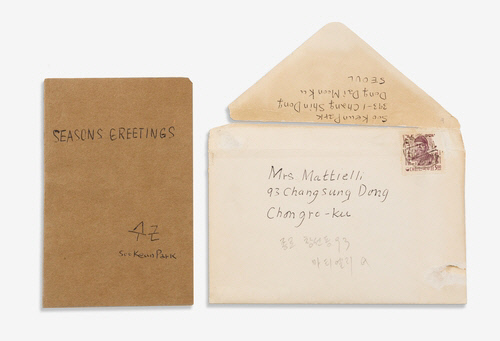 SEASONS GREETINGS
Soo Keun Park
Soo Keun Park
393-1 Chang Shin Dong
Dong Dai Moon Ku
SEOUL
Mrs Mattielli
93 Changsung Dong
Chongro-ku